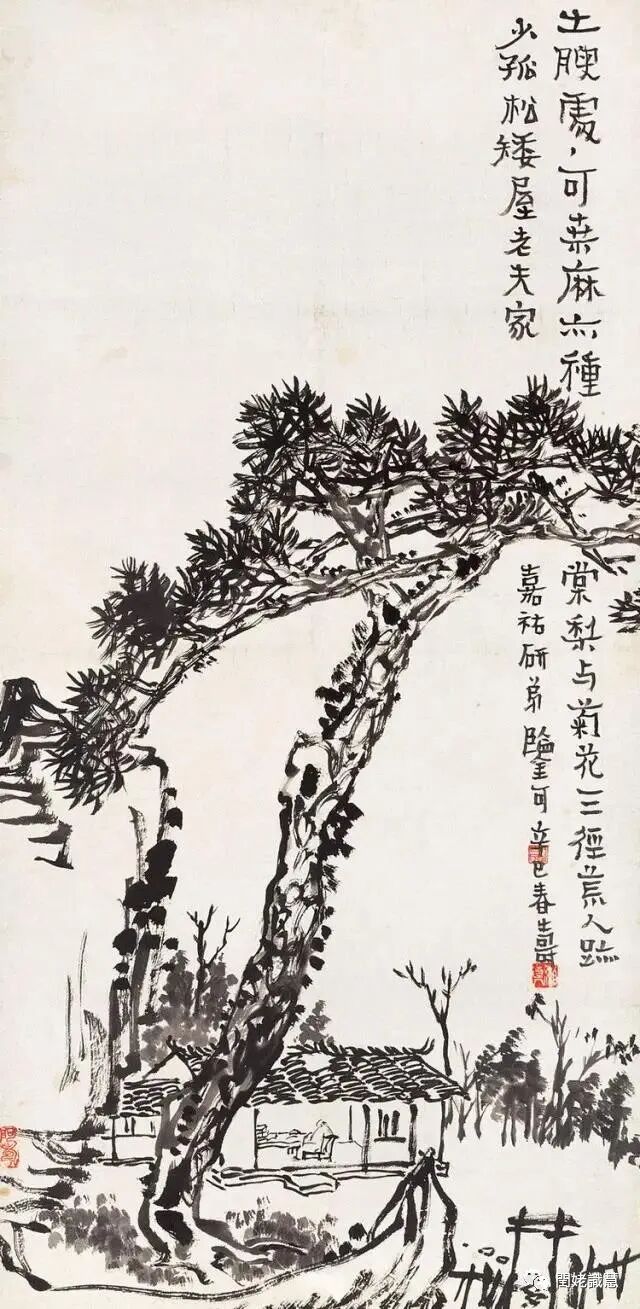 土腴處〻可桒麻亦種
棠梨与菊花一三徑荒人跡
少孤松矮屋老夫家
嘉祐研弟鑒可辛巳春 壽
閏姥識慧